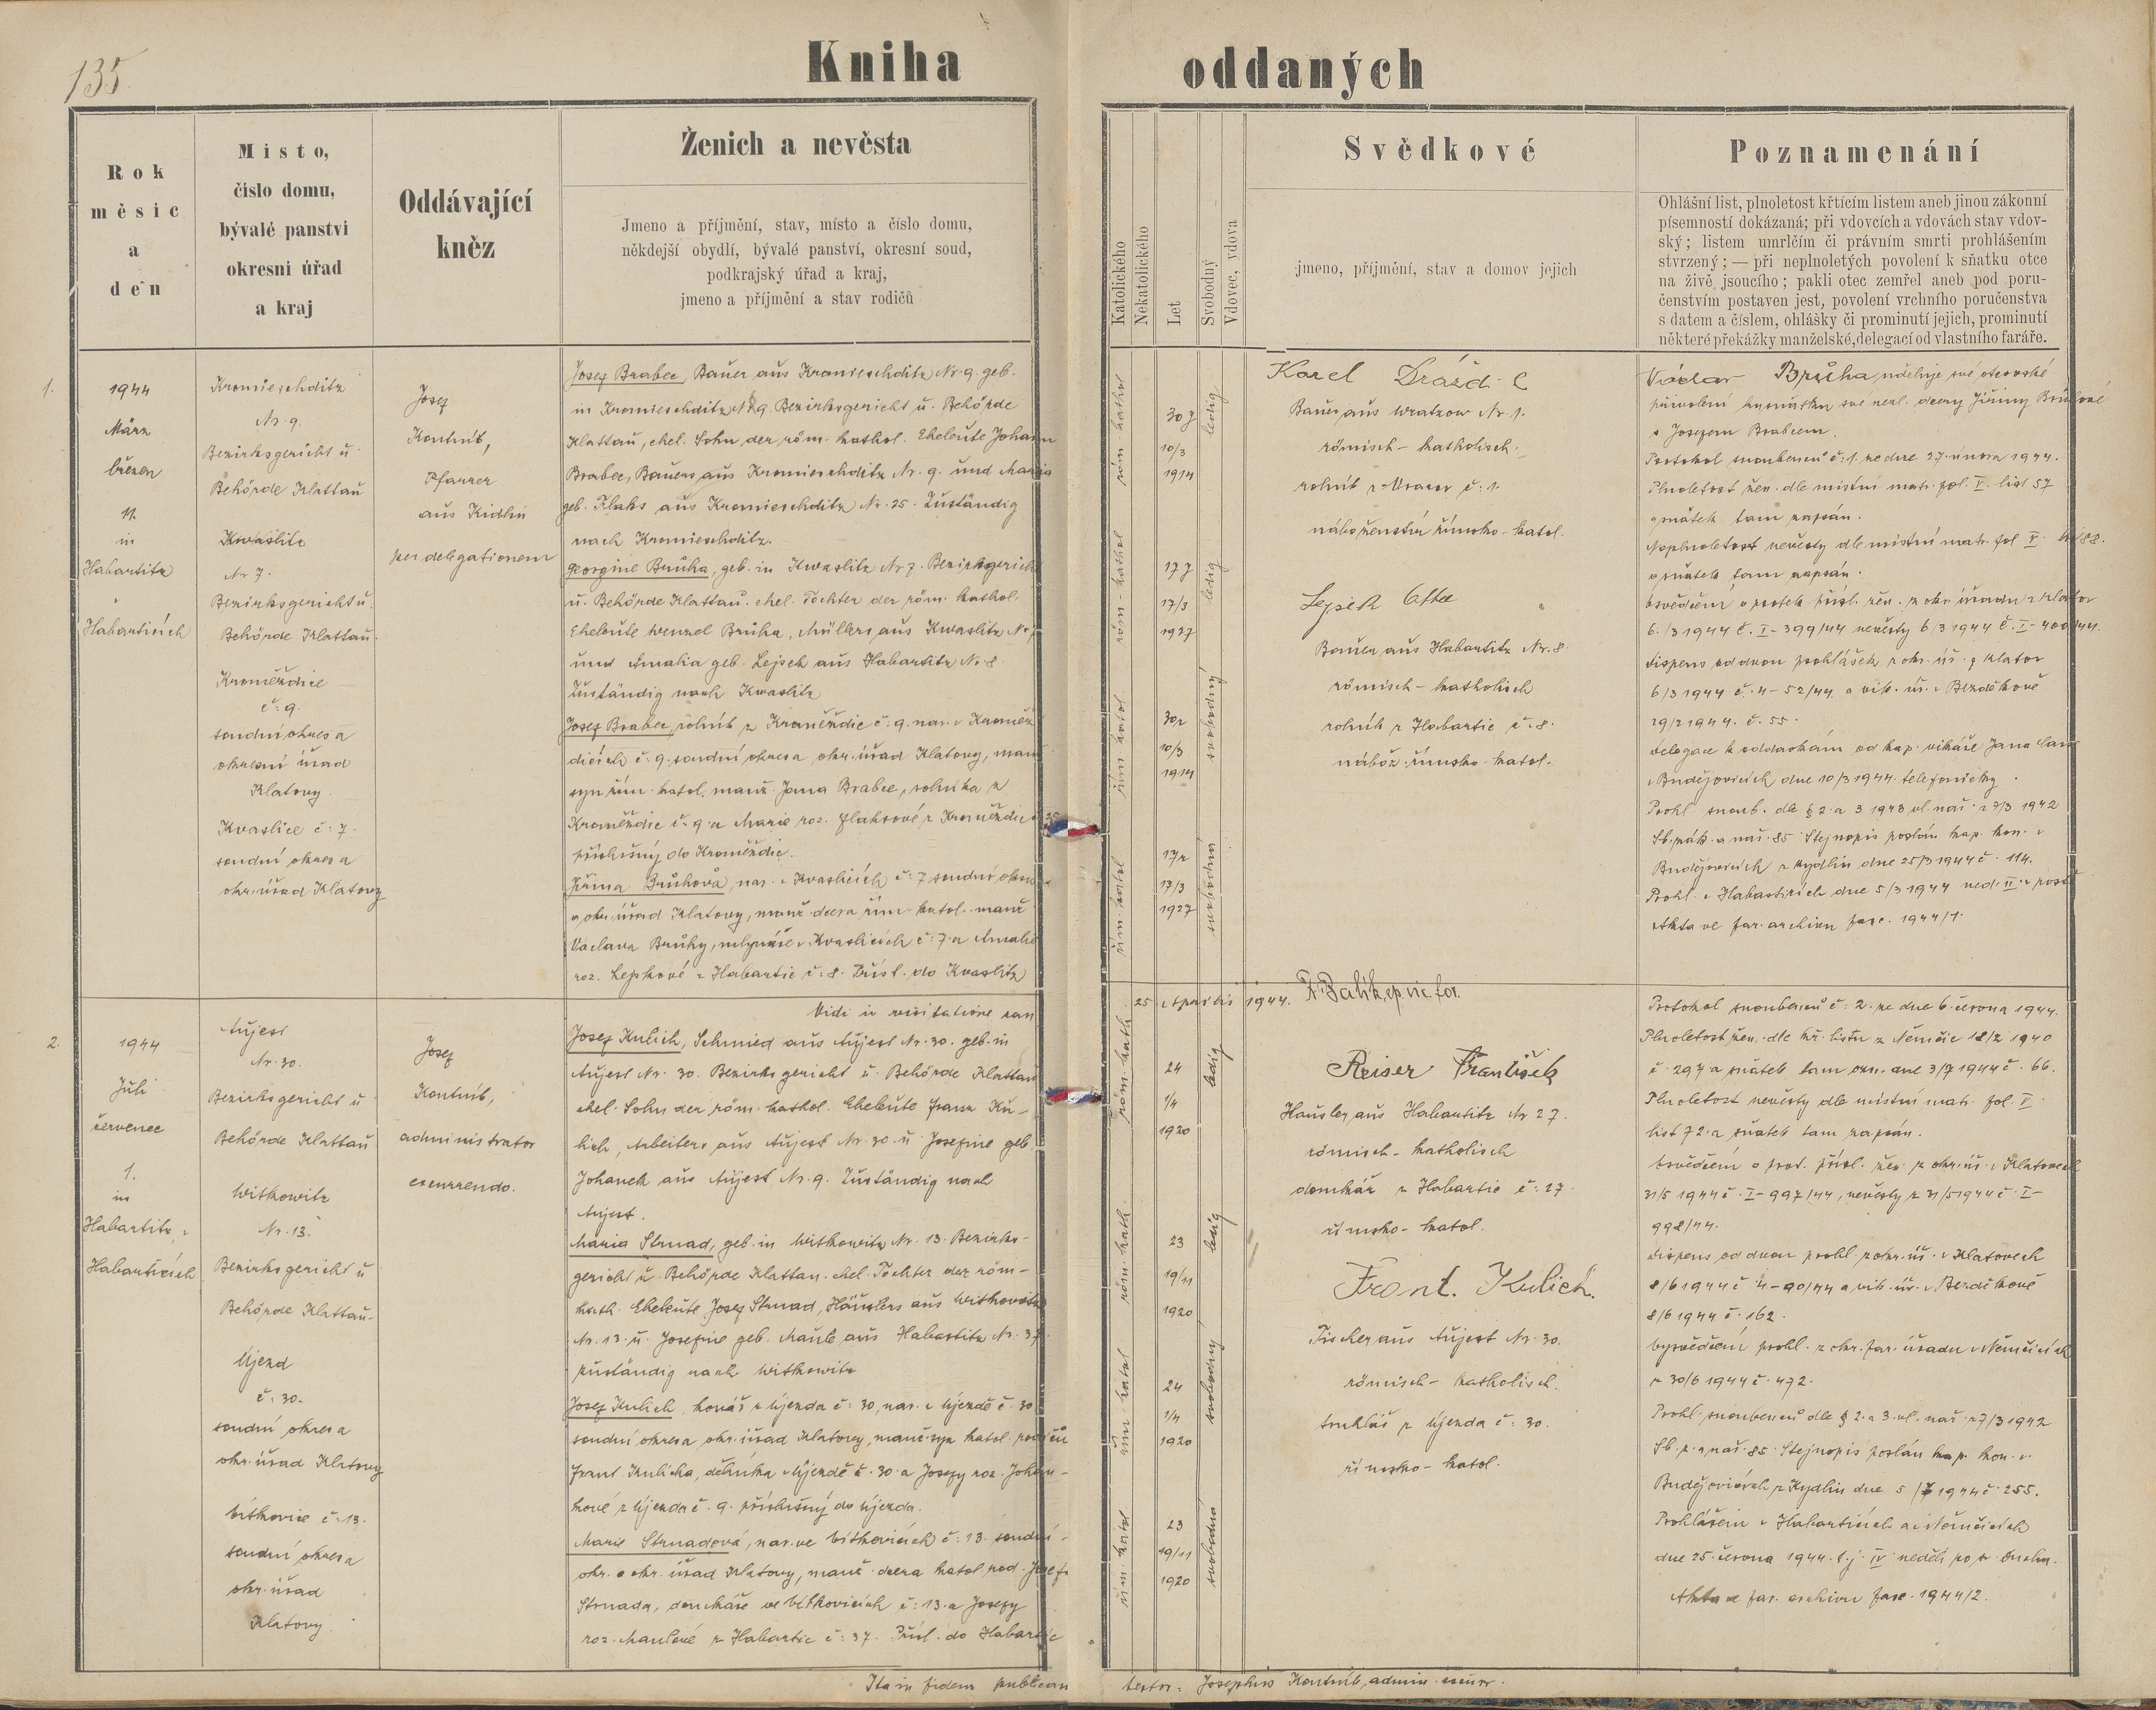 135.
Kniha oddaných
Rok
měsíc
a
den
Místo,
číslo domu,
bývalé panství
okresní úřad
a kraj
Oddávající
kněz
Ženich a nevěsta
Jmeno a příjmění, stav, místo a číslo domu,
někdejší obydlí, bývalé panství, okresní soud,
podkrajský úřad a kraj,
jmeno a příjmění a stav rodičů
Katolického
Nekatolického
Let
Svobodný
Vdovec, vdova
Svědkové
jmeno, příjmění, stav a domov jejich
Poznamenání
Ohlášní list, plnoletost křtícím listem aneb jinou zákonní
písemností dokázaná; při vdovcích a vdovách stav vdov-
ský; listem umrlčím či právním smrti prohlášením
stvrzený; — při neplnoletých povolení k sňatku otce
na živě jsoucího; pakli otec zemřel aneb pod poru-
čenstvím postaven jest, povolení vrchního poručenstva
s datem a číslem, ohlášky či prominutí jejich, prominutí
některé překážky manželské, delegací od vlastního faráře.
1.
1944
März
březen
11.
in
Habartitz
Habarticích
Kromieschditz
Nr. 9.
Bezirksgericht u.
Behörde Klattau
Kwaslitz
Nr 7.
Bezirksgericht u.
Behörde Klattau.
Kroměždice
č: 9.
soudní okres a
okresní úřad
Klatovy.
Kvaslice č: 7.
soudní okres a
okr. úřad Klatovy
Josef
Kontríb,
Pfarrer
aus Kidlin
per delegationem
Josef Brabec, Bauer aus Kromieschditz Nr. 9. geb.
in Kromieschditz N 9. Bezirksgericht u. Behörde
Klattau, ehel. Sohn der röm. kathol. Eheleute Johann
Brabec, Bauers aus Kromieschditz Nr. 9. und Maria
geb. Flaks aus Kromieschditz Nr. 25. Zuständig
nach Kromieschditz.
Georgine Brůha, geb. in Kwaslitz Nr 7. Bezirksgericht
u. Behörde Klattau. ehel. Tochter der röm. kathol.
Eheleute Wenzel Brůha, Müllers aus Kwaslitz Nr 7
und Amalia geb. Lejsek aus Habartitz Nr. 8.
Zuständig nach Kwaslitz
Josef Brabec, rolník z Kroměždic č: 9. nar. v Kroměž
dicích č: 9. soudní okres a okr. úřad Klatovy, manž
syn řím. katol. manž. Jana Brabce, rolníka z
Kroměždic č. 9. a Marie roz. Flaksové z Kroměždic č 25
příslušný do Kroměždic.
Jiřina Brůhová, nar. v Kvaslicích č: 7 soudní okres
a okr. úřad Klatovy, manž. dcera řím. katol. manž.
Václava Brůhy, mlynáře v Kvaslicích č: 7. a Amalie
roz. Lejskové z Habartic č: 8. Přísl. do Kvaslic
röm. kathol
röm-kathol
řím katol
řím katol
30 J
10/3
1914
17 J
17/3
1927
30 r
10/3
1914
17 r
17/3
1927
ledig
ledig
svobodný
svobodná
Karel Dražd l
Bauer aus Wratzow Nr 1.
römisch-katholisch.
rolník z Vracov č: 1.
náboženství římsko-katol.
Lejsek Otto
Bauer aus Habartitz Nr. 8.
römisch-katholisch
rolník z Habartic č: 8.
nábož. římsko-katol.
Václav Brůha uděluje své otcovské
přivolení k sňatku své nezl. dcery Jiřiny Brůhové
s Josefem Brabcem.
Protokol snoubenců č: 1. ze dne 27. února 1944.
Plnoletost žen. dle místní matr. fol. V. list 57
a sňatek tam zapsán.
Neplnoletost nevěsty dle místní matr. fol V. list 88.
a sňatek tam zapsán.
Osvědčení o protek. přísl. žen. z okr. úřadu v Klatov
6./3 1944 č. I-399/44 nevěsty 6/3 1944 č. I-400/44.
Dispens od dvou prohlášek z okr. úř. v Klatov
6/3 1944 č. 4-52/44 a vik. úř. v Bezděkově
29/2 1944. č. 55.
Delegace k oddavkám od kap. vikáře Jana
v Budějovicích dne 10/3 1944. telefonicky.
Prohl. snoub. dle § 2. a 3 1943 vl. nař. z 7/3 1942
Sb. zák. a nař. 85 Stejnopis poslán kap. kon. v
Budějovicích z Kydlin dne 25/3 1944 č. 114.
Prohl. v Habarticích dne 5/3 1944 ned. II. v postě
Akta ve far. archivu fasc. 1944/1.
Vidi in visitatione can
25. Aprilis 1944.
2.
1944
Juli
červenec
1.
in
Habartitz, v
Habarticích
Aujest
Nr. 30.
Bezirksgericht u
Behörde Klattau
Witkowitz
Nr. 13.
Bezirksgericht u
Behörde Klattau.
Újezd
č: 30.
soudní okres a
okr. úřad Klatovy
Vítkovice č: 13.
soudní okres a
okr. úřad
Klatovy.
Josef
Kontríb,
administrator
excurrendo.
Josef Kulich, Schmied aus Aujest Nr. 30. geb. in
Aujest Nr. 30. Bezirksgericht u. Behörde Klattau
ehel. Sohn der röm. kathol. Eheleute Franz Ku-
lich, Arbeiters aus Aujest Nr. 30. u. Josefine geb.
Johanek aus Aujest Nr. 9. Zuständig nach
Aujest.
Maria Strnad, geb. in Witkowitz Nr. 13. Bezirks-
gericht u. Behörde Klattau. ehel. Tochter der röm-
kath. Eheleute Josef Strnad, Häuslers aus Witkowitz
Nr. 13. u. Josefine geb. Maule aus Habartitz Nr. 37.
zuständig nach Witkowitz
Josef Kulich, kovář z Újezda č: 30, nar. v Újezdě č. 30
soudní okres a okr. úřad Klatovy, manž. syn katol. rodičů
Frant. Kulicha, dělníka v Újezdě č. 30. a Josefy roz. Johan-
kové z Újezda č. 9. příslušný do Újezda.
Marie Strnadová, nar. ve Vítkovicích č: 13. soudní
okr. a okr. úřad Klatovy, manž. dcera katol rod. Josefa
Strnada, domkáře ve Vítkovicích č: 13. a Josefy
roz. Maulové z Habartic č: 37. Přísl. do Habartic
röm. kath.
röm. kath.
řím. katol
řím. katol
24
1/4
1920
23
19/11
1920
24
1/4
1920
23
19/11
1920
ledig
ledig
svobodný
svobodná
Reiser František
Häusler aus Habartitz Nr 27.
römisch-katholisch
domkář z Habartic č: 27.
římsko-katol.
Frant. Kulich.
Tischer aus Aujest Nr. 30.
römisch-katholisch.
truhlář z Újezda č: 30.
římsko-katol.
Protokol snoubenců č: 2. ze dne 6. června 1944.
Plnoletost žen. dle kř. listu z Němčic 18/2 1940
č. 297 a sňatek tam ozn. dne 3/7 1944 č. 66.
Plnoletost nevěsty dle místní matr. fol. V.
list 72. a sňatek tam zapsán.
Osvědčení o prot. přísl. žen. z okr. úř. v Klatovech
31/5 1944 č. I-997/44, nevěsty z 31/5 1944 č. I-
998/44.
Dispens od dvou prohl z okr. úř. v Klatovech
8/6 1944 č 4-90/44 a vik. úř. v Bezděkově
8/6 1944 č. 162.
Vysvědčení prohl. z okr. far. úřadu v Němčicích
z 30/6 1944 č. 472.
Prohl. snoubenců dle § 2. a 3. vl. nař. z 7/3 1942
Sb. z. a nař. 85. Stejnopis poslán kap. kon. v
Budějovicích z Kydlin dne 5/7 1944 č. 255.
Prohlášeni v Habarticích a v Němčicích
dne 25. června 1944. t. j. IV neděli po sv. Duchu.
Akta ve far. archivu fasc. 1944/2.
Ita in fidem publicam testor: Josephus Kontríb, admin. excurr.